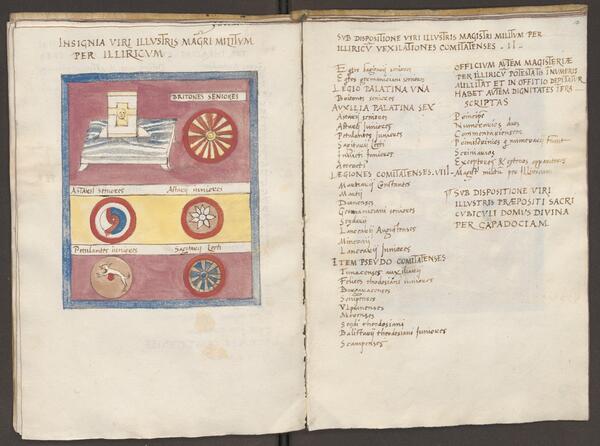 INSIGNIA VIRI ILLVSTRIS MAGRI MILITVM
PER ILLIRICVM
BRITONES SENIORES
Astarii seniores
Astarii iuniores
Petulantes iuniores
Sagitarii Lecti
SVB DISPOSITIONE VIRI ILLVSTRIS MAGISTRI MILITVM PER
ILLIRICV VEXILATIONES COMITATENSES . II .
seniores
Eqtes germaniciani seniores
LEGIO PALATINA VNA
Britones seniores
AVXILIA PALATINA SEX
Astarii seniores
Astarii Iuniores
Petulantes Iuniores
Sagitarii Lecti
Inuicti Iuniores
Atecocti
LEGIONES COMITATENSES . VIII
Martii
Dianenses
Germaniciani seniores
Lancearii Augustenses
Minervii
Lancearii Iuniores
ITEM PSEVDO COMITATENSES
Timacenses auxiliarii
Felices theodosiani iuniores
Scupenses
Vlpianenses
Merenses
Sc̄di theodosiani
Balistarii theodosiani Iuniores
Scampenses
OFFICIVM AVTEM MAGISTERIÆ
PER ILLIRICV POTESTATIS IN NVMERIS
MILLITAT ET IN OFFITIO DEPVTATVR
HABET AVTEM DIGNITATES IFRA
SCRIPTAS
Principe
Numerarios duos
Commentariensem
Scriniarios
Exceptores & ceteros apparitores
Magistri militu per Illiricum
SVB DISPOSITIONE VIRI
ILLVSTRIS PRÆPOSITI SACRI
CVBICVLI DOMVS DIVINA
PER CAPADOCIAM